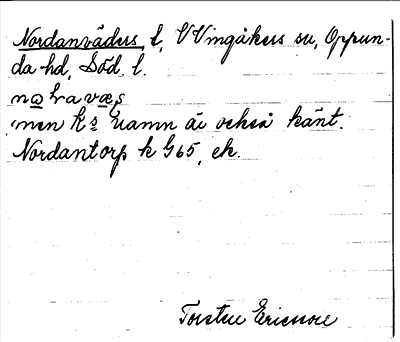 Nordanväders, t, V Vingåkers sn, Oppun-
da hd, Söd. l.
men k:s namn är också känt.
Nordantorp k G65, ek.
Torsten Ericsson